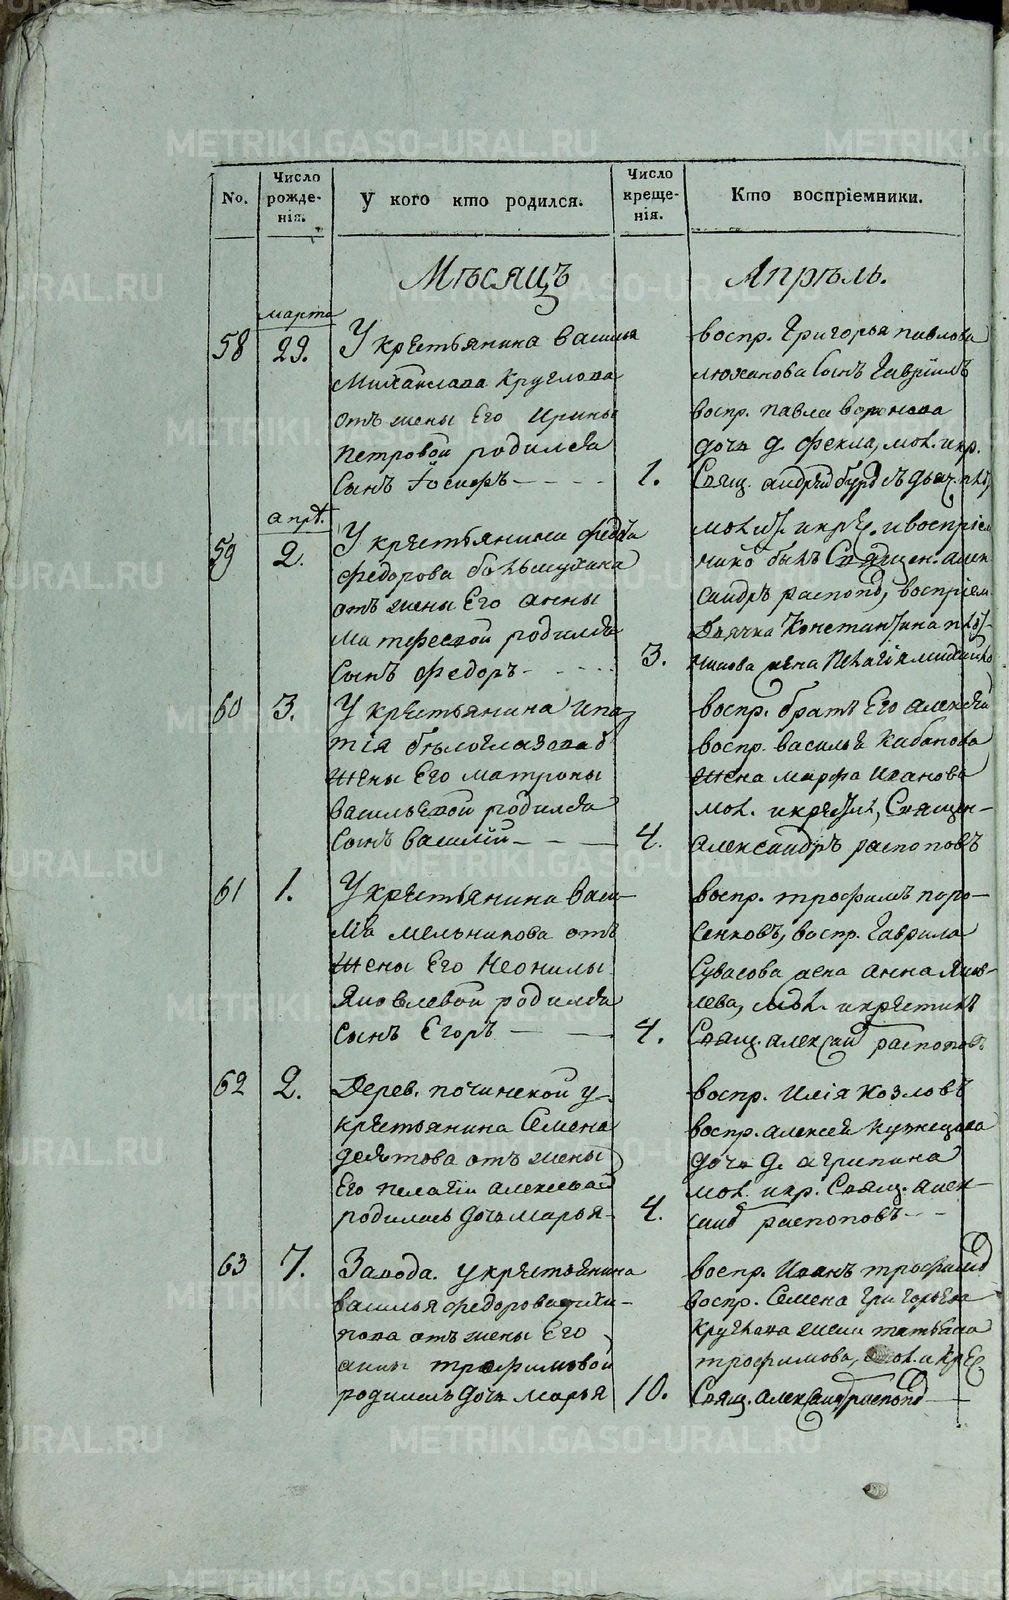 No.
Число рожде-нія.
У кого кто родился.
Число креще-нія.
Кто воспріемники.
Мѣсяцъ Апрѣль.
марта
58 29. У крестьянина Василья
Михаилова Круглова
отъ жены Его Ирины
Петровой родился
Сынъ Іосифъ 1.
воспр. Григорья Павлова
сынъ Гавріилъ
воспр. Павла Воронова
дочь д. Фекла, мол. и кр.
Свящ. Андрей
апр.
59 2. У крестьянина Федора
Федорова
отъ жены Его Анны
Матфеевой родился
Сынъ Федоръ 3.
мол. и кре. и воспріем
никъ былъ Священ. Алек
сандръ Распоп, воспріем.
Дьячка Константина
жена Пелагія
60 3. У крестьянина Ипа
тія Бѣлоглазова
жены Его Матроны
Васильевой родился
Сынъ Василій 4.
воспр. братъ Его Алексѣй
воспр. Василья Кабанова
жена Марфа Иванова
мол. и крест, Священ-
Александръ Распоповъ
61 1. У крестьянина Васи-
лія Мельникова отъ
жены Его Неонилы
Яковлевой родился
Сынъ Егоръ 4.
воспр. Трофимъ Поро-
сенковъ, воспр. Гаврила
жена Анна Яков-
лева, мол. и крестилъ
Свящ. Александ Распоповъ
62 2. Дерев. Починской у
крестьянина Семена
Девятова отъ жены
Его Пелагіи Алексѣвой
родилась дочь Марья 4.
воспр. Илія Козловъ
воспр. Алексея Кузнецова
дочь д. Агрипина
мол. и кр. Свящ. Алек
санд Распоповъ
63 7. Завода. у крестьянина
Василья Федорова
отъ жены Его
Анны Трофимовой
родилась дочь Марья 10.
воспр. Иванъ Трофимов
воспр. Семена Григорьева
Круглова жена Татьяна
Трофимова, мол. и кре
Свящ. Александ Распопо
METRIKI.GASO-URAL.RU